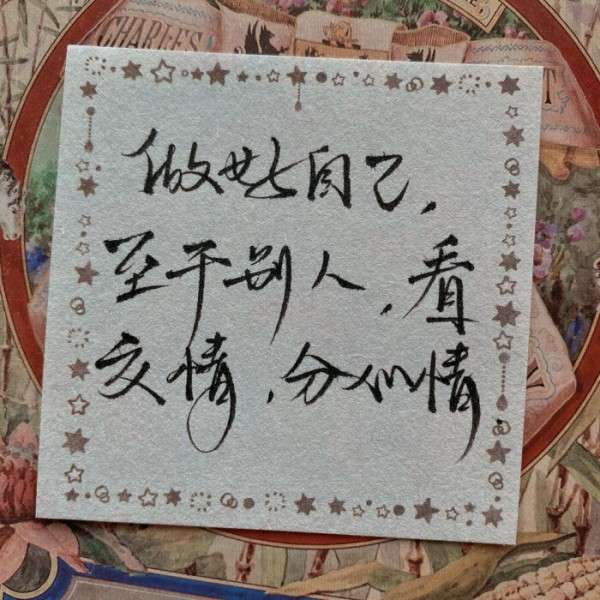 CHARLES
做好自己，
至于别人，看
交情，分心情.